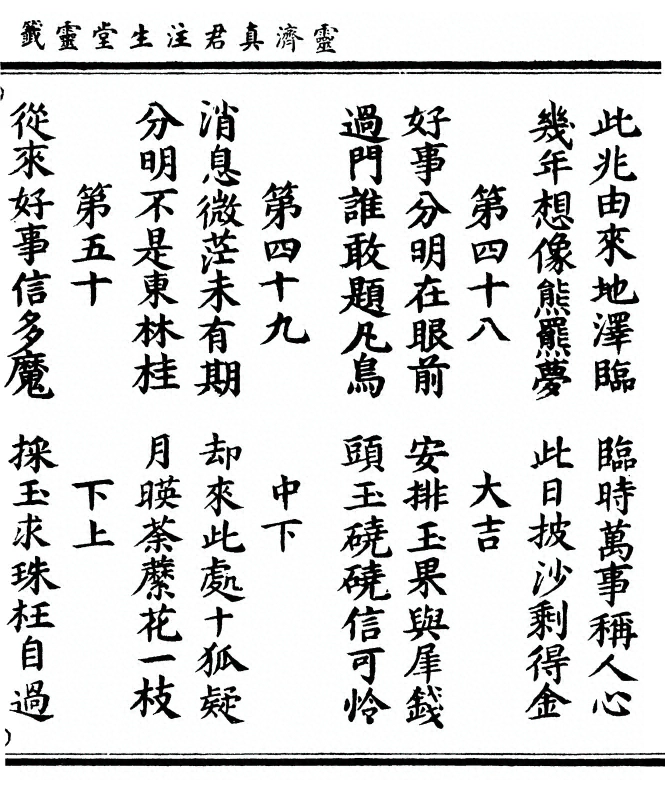 靈濟真君注生堂靈籤
此兆由來地澤臨 臨時萬事稱人心
幾年想像熊羆夢 此日披沙剩得金
第四十八 大吉
好事分明在眼前 安排玉果與犀錢
過門誰敢題凡鳥 頭玉磽磽信可怜
第四十九 中下
消息微茫未有期 却來此處十狐疑
分明不是東林桂 月暎荼花一枝
第五十 下上
從來好事信多魔 採玉求珠枉自過